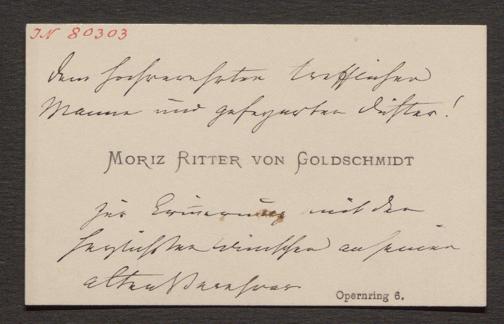 JN 80303
Dem hochverehrten trefflichen
Manne und gefeyerten Dichter!
MORIZ RITTER VON GOLDSCHMIDT
zur Erinnerung mit den
herzlichsten Wünschen an seinen
alten Verehrer
Opernring 6.